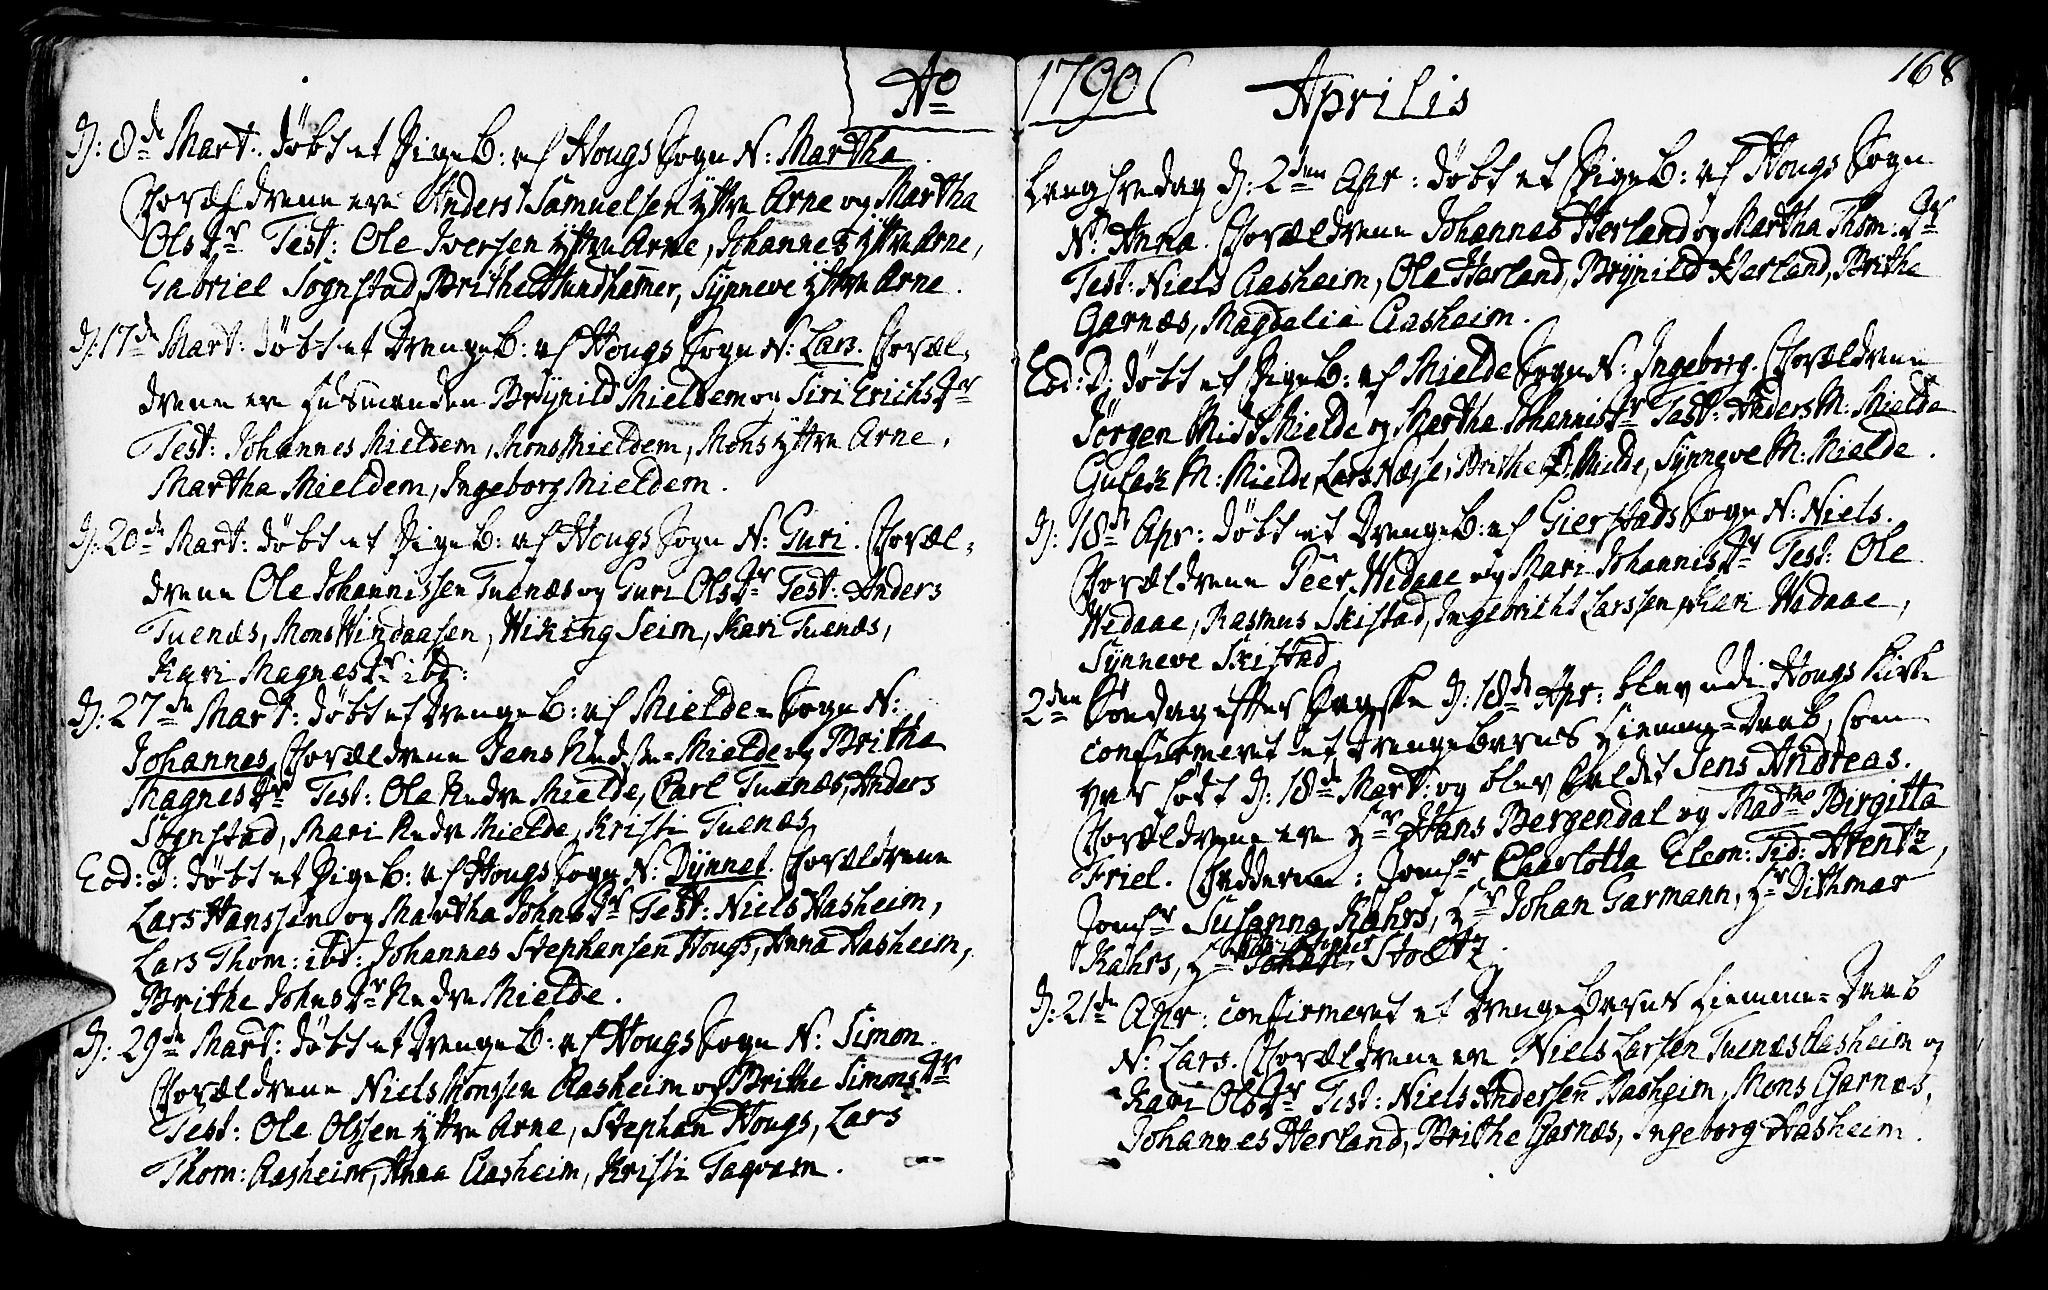 Ao
D: 8de Mart: døbt et Pige B: af Hougs Sogn N: Martha
Forældrene ere Anders Samuelsen Yttre Arne og Martha
Ols Dr Test: Ole Iversen Yttre Arne, Johannes Yttre Arne,
Gabriel Sognstad, Brithe Hundhamer, Synneve Yttre Arne.
D: 17de Mart: døbt et Drenge B: af Hougs Sogn N: Lars. Foræl-
drene ere Huusmanden Brynild Mieldem og Siri Erichs Dr
Test: Johannes Mieldem, Mons Mieldem, Mons Yttre Arne,
Martha Mieldem, Ingeborg Mieldem.
D: 20de Mart: døbt et Pige B: af Hougs Sogn N: Guri. Foræl-
drene Ole Johannissen Tuenæs og Guri Ols Dr Test: Anders
Tuenæs, Mons Windaasen, Wiking Seim, Kari Tuenæs,
Kari Magnes Dr ibd:
D: 27de Mart: døbt et Drenge B: af Mielde-Sogn N:
Johannes, Forældrene Jens Nedre-Mielde og Brithe
Magnes Dr Test: Ole Nedre Mielde, Carl Tuenæs, Anders
Sognstad, Mari Nedre Mielde, Kristi Tuenæs
Eod: D: døbt et Pige B: af Hougs Sogn N: Dynnet. Forældrene
Lars Hanssen og Martha Johns Dr Test: Niels Aasheim,
Lars Thom: ibd: Johannes Stephansen Hougs, Anna Aasheim,
Brithe Johns Dr Nedre Mielde.
D: 29de Mart: døbt et Drenge B: af Hougs Sogn N: Simon.
Forældrene Niels Monsen Aasheim og Brithe Simons Dr
Test: Ole Olssen Yttre Arne, Stephan Hougs, Lars
Thom: Aasheim, Anna Aasheim, Kristi Taqvam.
1790 Aprilis 168
Langfredag D: 2den Apr: døbt et Pige B: af Hougs Sogn
N: Anna. Forældrene Johannes Herland og Martha Thom: Dr
Test: Niels Aasheim, Ole Herland, Brynild Herland, Brithe
Garnæs, Magdalia Aasheim.
Eod: D: døbt et Pige B: af Mielde Sogn N: Ingeborg. Forældrene
Jørgen Mid Mielde og Martha Johannis Dr Test: Anders M: Mielde
Gulack M: Mielde, Lars Næsse, Brithe Mielde, Synneve M: Mielde.
D: 18de Apr: døbt et Drenge B: af Gierstads Sogn N: Niels.
Forældrene Peer Wedaae og Mari Johannis Dr Test: Ole
Wedaae, Rasmus Skistad, Ingebricht Larssen, Kari Wedaae,
Synneve Skistad
2den Søndag efter Paaske D: 18de Apr: blev udi Hougs Kirke
confirmeret et Drengebarns Hiemme-Daab, som
var født D: 18de Mart: og blev kaldet Jens Andreas.
Forældrene ere Hr Hans Bergendal og Madme Birgitta
Friel. Fadderne: Jomfr Charlotta Eleon: Sid: Arentz,
Jomfr Susanna Kahrs, Hr Johan Garmann, Hr Dithmar
Kahrs, Hr Stoltz.
D: 21de Apr: confirmeret et Drengebarns Hiemme-Daab
N: Lars. Forældrene ere Niels Larsen Tuenæs Aasheim og
Kari Ols Dr Test: Niels Andersen Aasheim, Mons Garnæs,
Johannes Herland, Brithe Garnæs, Ingeborg Aasheim.